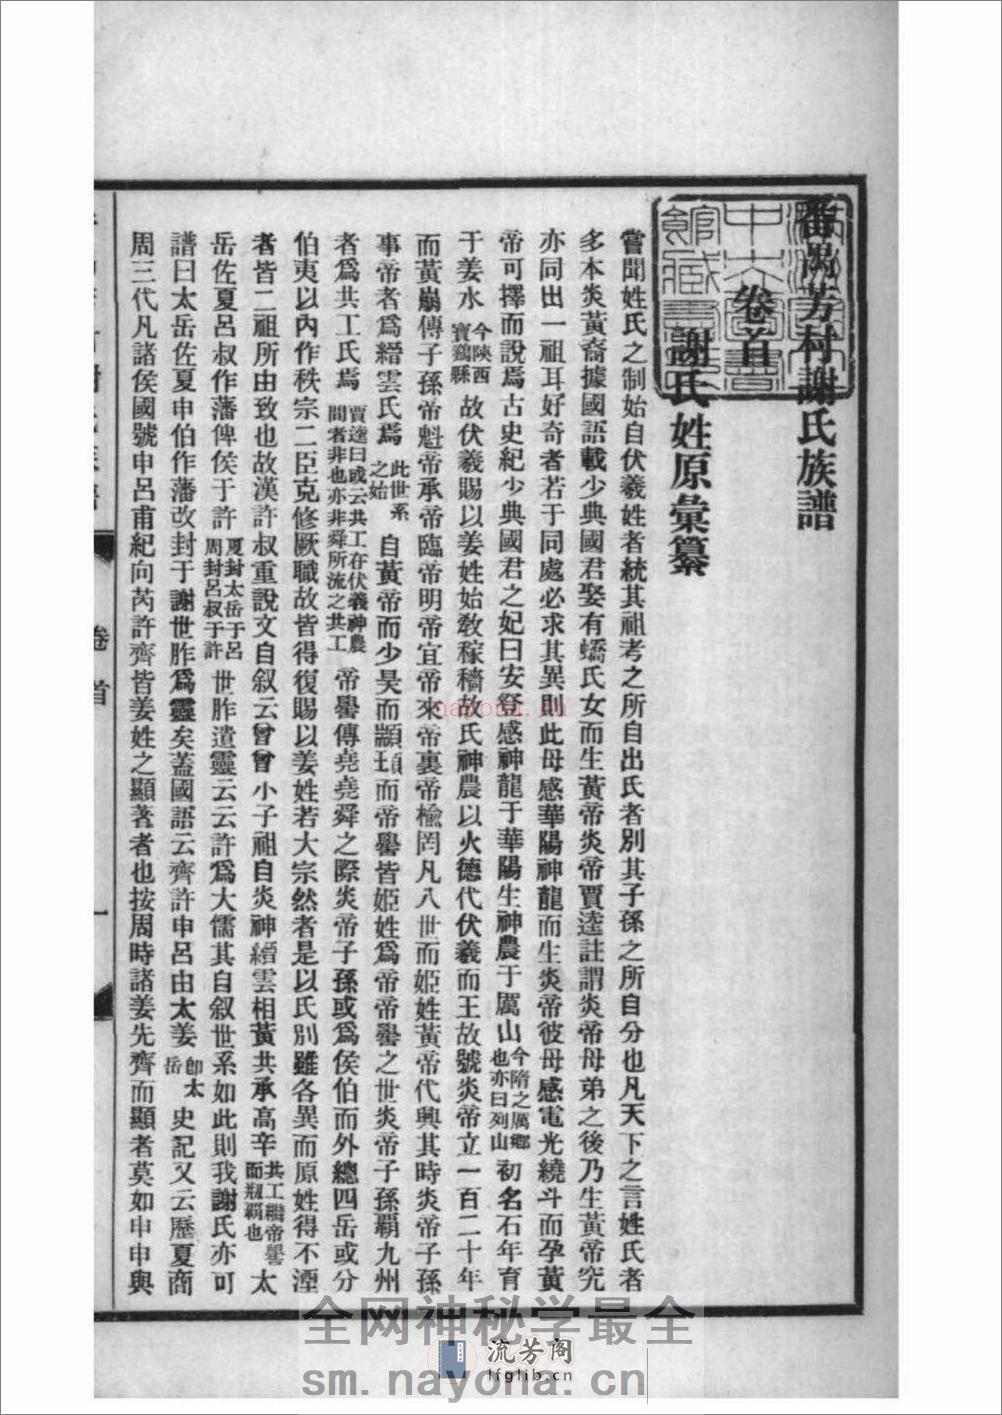 番陽芳村謝氏族譜
卷首
謝氏姓原彙纂
嘗聞姓氏之制始自伏羲姓者統其祖考之所自出氏者別其子孫之所自分也凡天下之言姓氏者
多本炎黃裔據國語載少典國君娶有蟜氏女而生黃帝炎帝賈逵註謂炎帝母弟之後乃生黃帝究
亦同出一祖耳好奇者若于同處必求其異則此母感華陽神龍而生炎帝彼母感電光繞斗而孕黃
帝可擇而說焉古史紀少典國君之妃曰安登感神龍于華陽生神農于厲山今隋之厲鄉也亦曰列山初名石年育
于姜水今陝西寶鷄縣故伏羲賜以姜姓始敎稼穡故氏神農以火德代伏羲而王故號炎帝立一百二十年
而黃崩傳子孫帝魁帝承帝臨帝明帝宜帝來帝裏帝榆罔凡八世而姬姓黃帝代興其時炎帝子孫
事帝者爲縉雲氏焉此世系之始自黃帝而少昊而顓頊而帝嚳皆姬姓爲帝帝嚳之世炎帝子孫霸九州
者爲共工氏焉賈逵曰或云共工在伏羲神農間者非也亦非舜所流之共工帝嚳傳堯堯舜之際炎帝子孫或爲侯伯而外總四岳或分
伯夷以內作秩宗二臣克修厥職故皆得復賜以姜姓若大宗然者是以氏別雖各異而原姓得不湮
者皆二祖所由致也故漢許叔重說文自叙云曾曾小子祖自炎神縉雲相黃共承高辛共工繼帝嚳而瓶霸也太
岳佐夏呂叔作藩俾侯于許夏封太岳于呂周封呂叔于許世胙遺靈云云許爲大儒其自叙世系如此則我謝氏亦可
譜曰太岳佐夏申伯作藩改封于謝世胙爲靈矣蓋國語云齊許申呂由太姜卽太岳史記又云歷夏商
周三代凡諸侯國號申呂甫紀向芮許齊皆姜姓之顯著者也按周時諸姜先齊而顯者莫如申申與
卷首
一
nayona.cn
全网神秘学最全
流芳阁
lfglib.cn
sm.nayona.cn